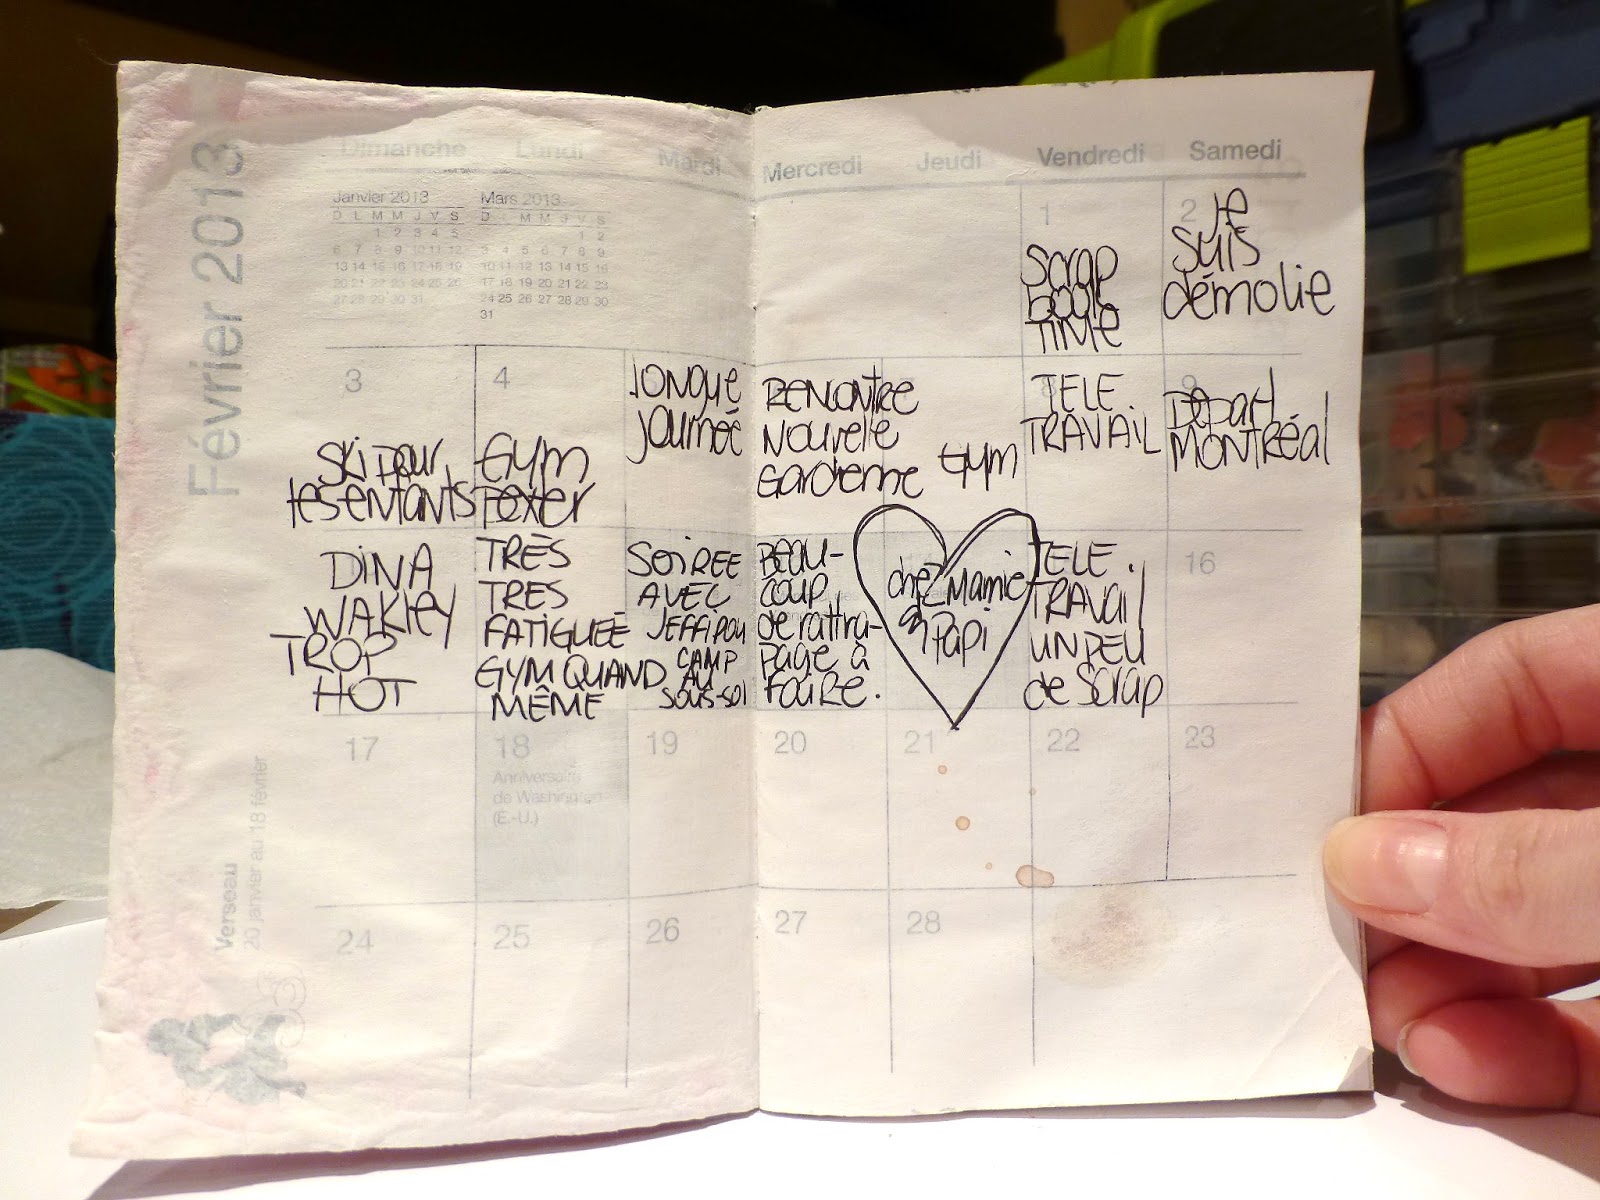 Février 2013
Dimanche Lundi Mardi Mercredi Jeudi Vendredi Samedi
Janvier 2013
D L M M J V S
1 2 3 4 5
6 7 8 9 10 11 12
13 14 15 16 17 18 19
20 21 22 23 24 25 26
27 28 29 30 31
Mars 2013
D L M M J V S
1 2
3 4 5 6 7 8 9
10 11 12 13 14 15 16
17 18 19 20 21 22 23
24 25 26 27 28 29 30
31
1
Scrap
TIME
2
je
suis
démolie
3
Ski pour
les enfants
4
Gym
longue
journée
RENCONTRE
Nouvelle
Gardienne
Gym
8
TELE
TRAVAIL
9
DÉPART
MONTRÉAL
DINA
WAKLEY
TROP
HOT
TRÈS
TRES
FATIGUÉE
GYM QUAND
MÊME
SOIREE
AVEC
JEFFIPOU
CAMP
AU
SOUS-SOL
BEAU-
COUP
de rattra-
page à
faire.
chez Mamie
Papi
TELE.
TRAVAIL
UN PEU
de SCRAP
16
17
18
Anniversaire
de Washington
(É.-U.)
19
20
21
22
23
24
25
26
27
28
Verseau
20 janvier au 18 février